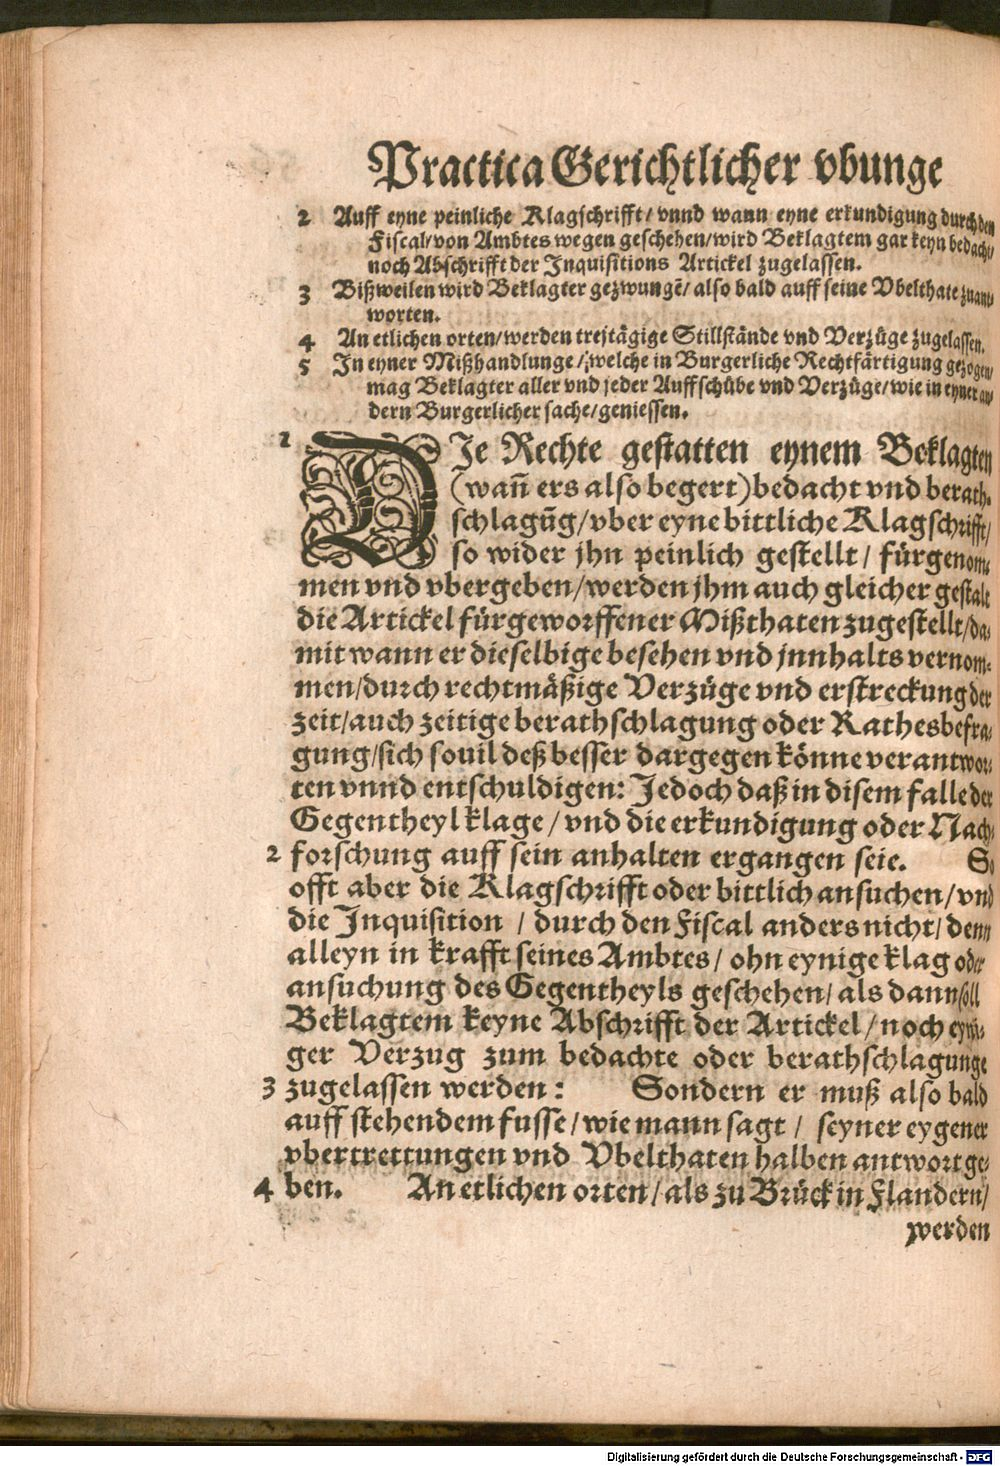 Practica Gerichtlicher vbunge
2 Auff eyne peinliche Klagschrifft / vnnd wann eyne erkundigung durch den
Fiscal/von Ambtes wegen geschehen/wird Beklagtem gar keyn bedacht/
noch Abschrifft der Inquisitions Artickel zugelassen.
3 Bißweilen wird Beklagter gezwungẽ/ also bald auff seine Vbelthate zuant⸗
worten.
4 An etlichen orten/werden treitägige Stillstände vnd Verzüge zugelassen.
5 In eyner Mißhandlunge / welche in Burgerliche Rechtfärtigung gezogen/
mag Beklagter aller vnd jeder Auffschübe vnd Verzüge/wie in eyner an⸗
dern Burgerlicher sache/geniessen.
1 DIe Rechte gestatten eynem Beklagten
(wañ ers also begert)bedacht vnd berath⸗
schlagũg/vber eyne bittliche Klagschrifft/
so wider jhn peinlich gestellt / fürgenom⸗
men vnd vbergeben/werden jhm auch gleicher gestalt
die Artickel fürgeworffener Mißthaten zugestellt/da⸗
mit wann er dieselbige besehen vnd jnnhalts vernom⸗
men/durch rechtmäßige Verzüge vnd erstreckung der
zeit/auch zeitige berathschlagung oder Rathesbefra⸗
gung/sich souil deß besser dargegen könne verantwor⸗
ten vnnd entschuldigen: Jedoch daß in disem falle der
Gegentheyl klage / vnd die erkundigung oder Nach⸗
2 forschung auff sein anhalten ergangen seie. So
offt aber die Klagschrifft oder bittlich ansuchen/vnd
die Inquisition / durch den Fiscal anders nicht/ denn
alleyn in krafft seines Ambtes/ ohn eynige klag oder
ansuchung des Gegentheyls geschehen/ als dann soll
Beklagtem keyne Abschrifft der Artickel / noch eyni⸗
ger Verzug zum bedachte oder berathschlagunge
3 zugelassen werden: Sondern er muß also bald
auff stehendem fusse/wie mann sagt / seyner eygener
vbertrettungen vnd Vbelthaten halben antwort ge⸗
4 ben. An etlichen orten/als zu Brück in Flandern/
werden
Digitalisierung gefördert durch die Deutsche Forschungsgemeinschaft - DFG